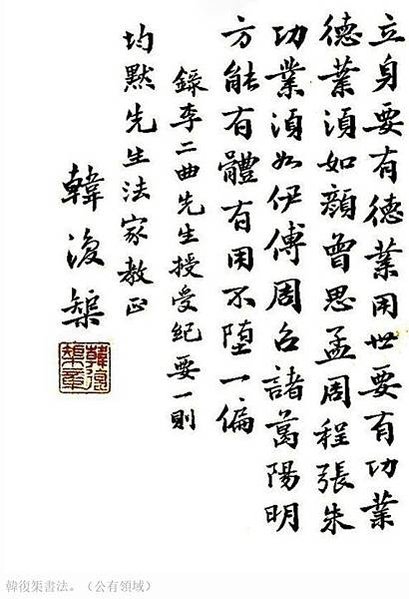 立身要有德業用世要有功業
德業須如顏曾思孟周程張朱
功業須如伊傅周召諸葛陽明
方能有體有用不墮一偏
錄李二曲先生授受紀要一則
均默先生法家教正
韓復榘
韓復
榘章
韓復榘書法。（公有領域）